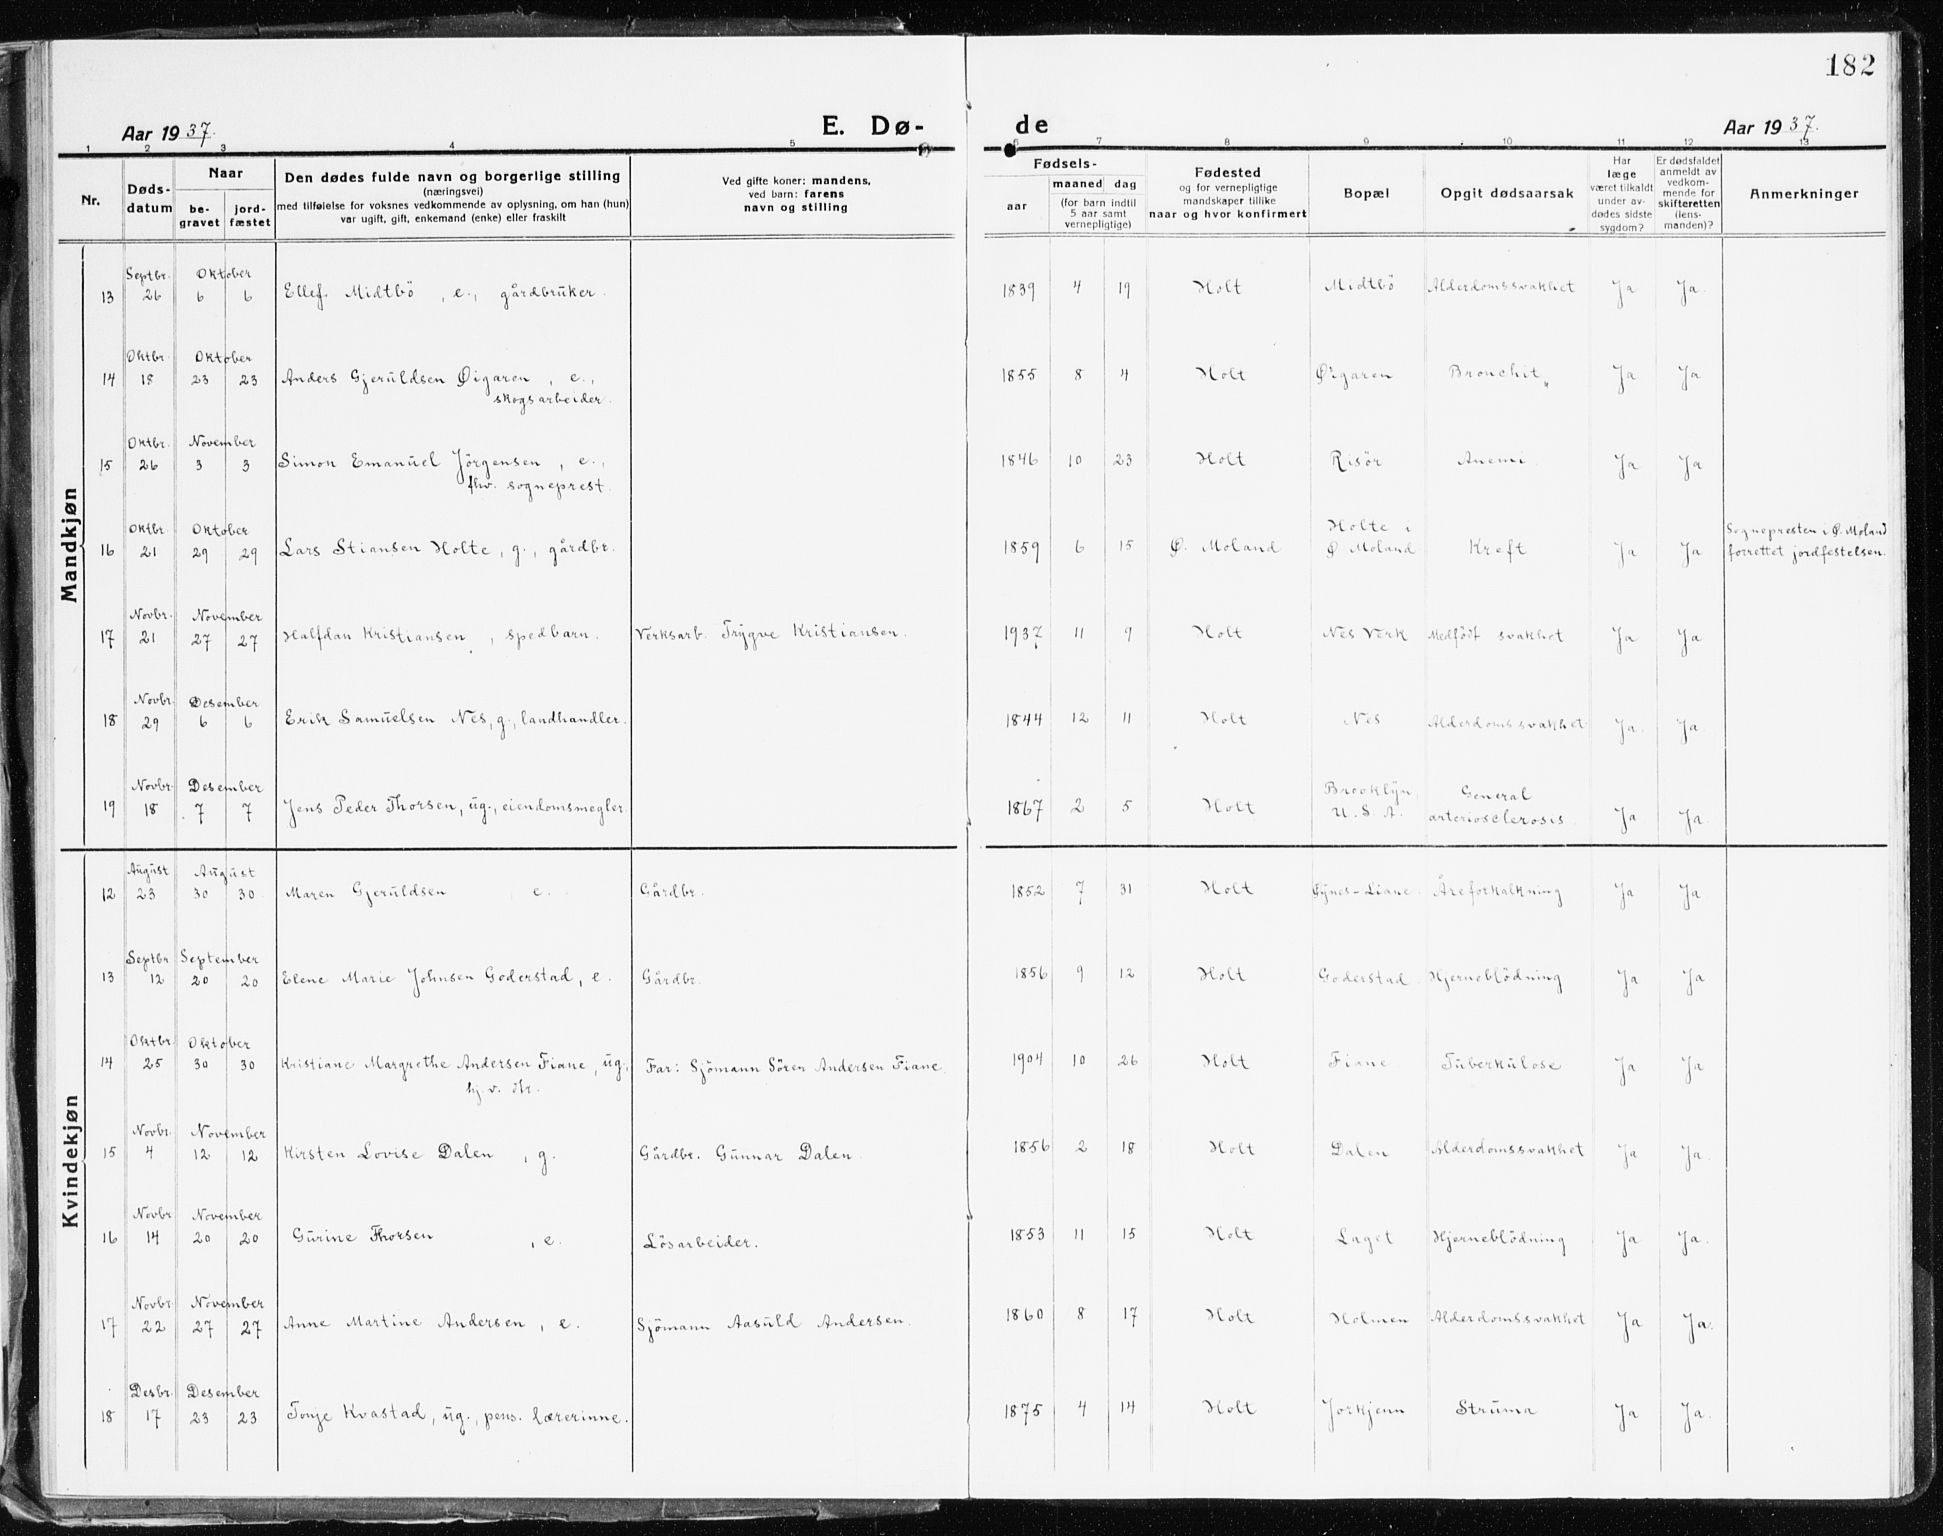 182
Aar 1937. E. Dø- de Aar 1937.
1 2 3 4 5 6 7 8 9 10 11 12 13
Nr.
Døds-
datum
Naar
be-
gravet
jord-
fæstet
Den dødes fulde navn og borgerlige stilling
(næringsvei)
med tilføielse for voksnes vedkommende av oplysning, om han (hun)
var ugift, gift, enkemand (enke) eller fraskilt
Ved gifte koner: mandens,
ved barn: farens
navn og stilling
Fødsels-
aar
maaned dag
(for barn indtil
5 aar samt
vernepligtige)
Fødested
og for vernepligtige
mandskaper tillike
naar og hvor konfirmert
Bopæl
Opgit dødsaarsak
Har
læge
været tilkaldt
under av-
dødes sidste
sygdom?
Er dødsfaldet
anmeldt av
vedkom-
mende for
skifteretten
(lens-
manden)?
Anmerkninger
Mandkjøn
Septbr. Oktober
13 26 6 6 Ellef Midtbö, e., gårdbruker. 1839 4 19 Holt Midtbö Alderdomssvakhet Ja Ja.
Oktbr. Oktober
14 18 23 23 Anders Gjeruldsen Øigaren, e., 1855 8 4 Holt Øigaren Bronchit Ja Ja
skogsarbeider.
Oktbr. November
15 26 3 3 Simon Emanuel Jörgensen, e., 1846 10 23 Holt Risör Anemi Ja Ja
fhv. sogneprest.
Oktbr. Oktober Holte i Sognepresten i Ø. Moland
16 21 29 29 Lars Stiansen Holte, g., gårdbr. 1859 6 15 Ø. Moland Ø Moland Kreft Ja Ja forrettet jordfestelsen.
Novbr. November
17 21 27 27 Halfdan Kristiansen, spedbarn. Verksarb. Trygve Kristiansen. 1937 11 9 Holt Nes Verk Medfödt svakhet Ja Ja
Novbr. Desember
18 29 6 6 Erik Samuelsen Nes, g., landhandler. 1844 12 11 Holt Nes Alderdomssvakhet Ja. Ja.
Novbr. Desember Brooklyn, General
19 18 7 7 Jens Peder Thorsen, ug., eiendomsmegler. 1867 2 5 Holt U. S. A. arteriosclerosis. Ja Ja.
Kvindekjøn
August August
12 23 30 30 Maren Gjeruldsen, e. Gårdbr. 1852 7 31 Holt Øynes-Liane Åreforkalkning Ja Ja
Septbr September
13 12 20 20 Elene Marie Johnsen Goderstad, e. Gårdbr. 1856 9 12 Holt Goderstad Hjerneblödning Ja Ja.
Oktbr. Oktober
14 25 30 30 Kristiane Margrethe Andersen Fiane, ug., Far: Sjömann Sören Andersen Fiane. 1904 10 26 Holt Fiane Tuberkulose Ja Ja
hj.v. dtr.
Novbr. November
15 4 12 12 Kirsten Lovise Dalen, g. Gårdbr. Gunnar Dalen. 1856 2 18 Holt Dalen Alderdomssvakhet Ja Ja.
Novbr November
16 14 20 20 Gurine Thorsen, e. Lösarbeider. 1853 11 15 Holt Laget Hjerneblödning Ja Ja.
Novbr. November
17 22 27 27 Anne Martine Andersen, e. Sjömann Aasuld Andersen. 1860 8 17 Holt Holmen Alderdomssvakhet Ja Ja.
Desbr. Desember
18 17 23 23 Tonje Kvastad, ug., pens. lærerinne. 1875 4 14 Holt Jorkjenn Struma Ja Ja.